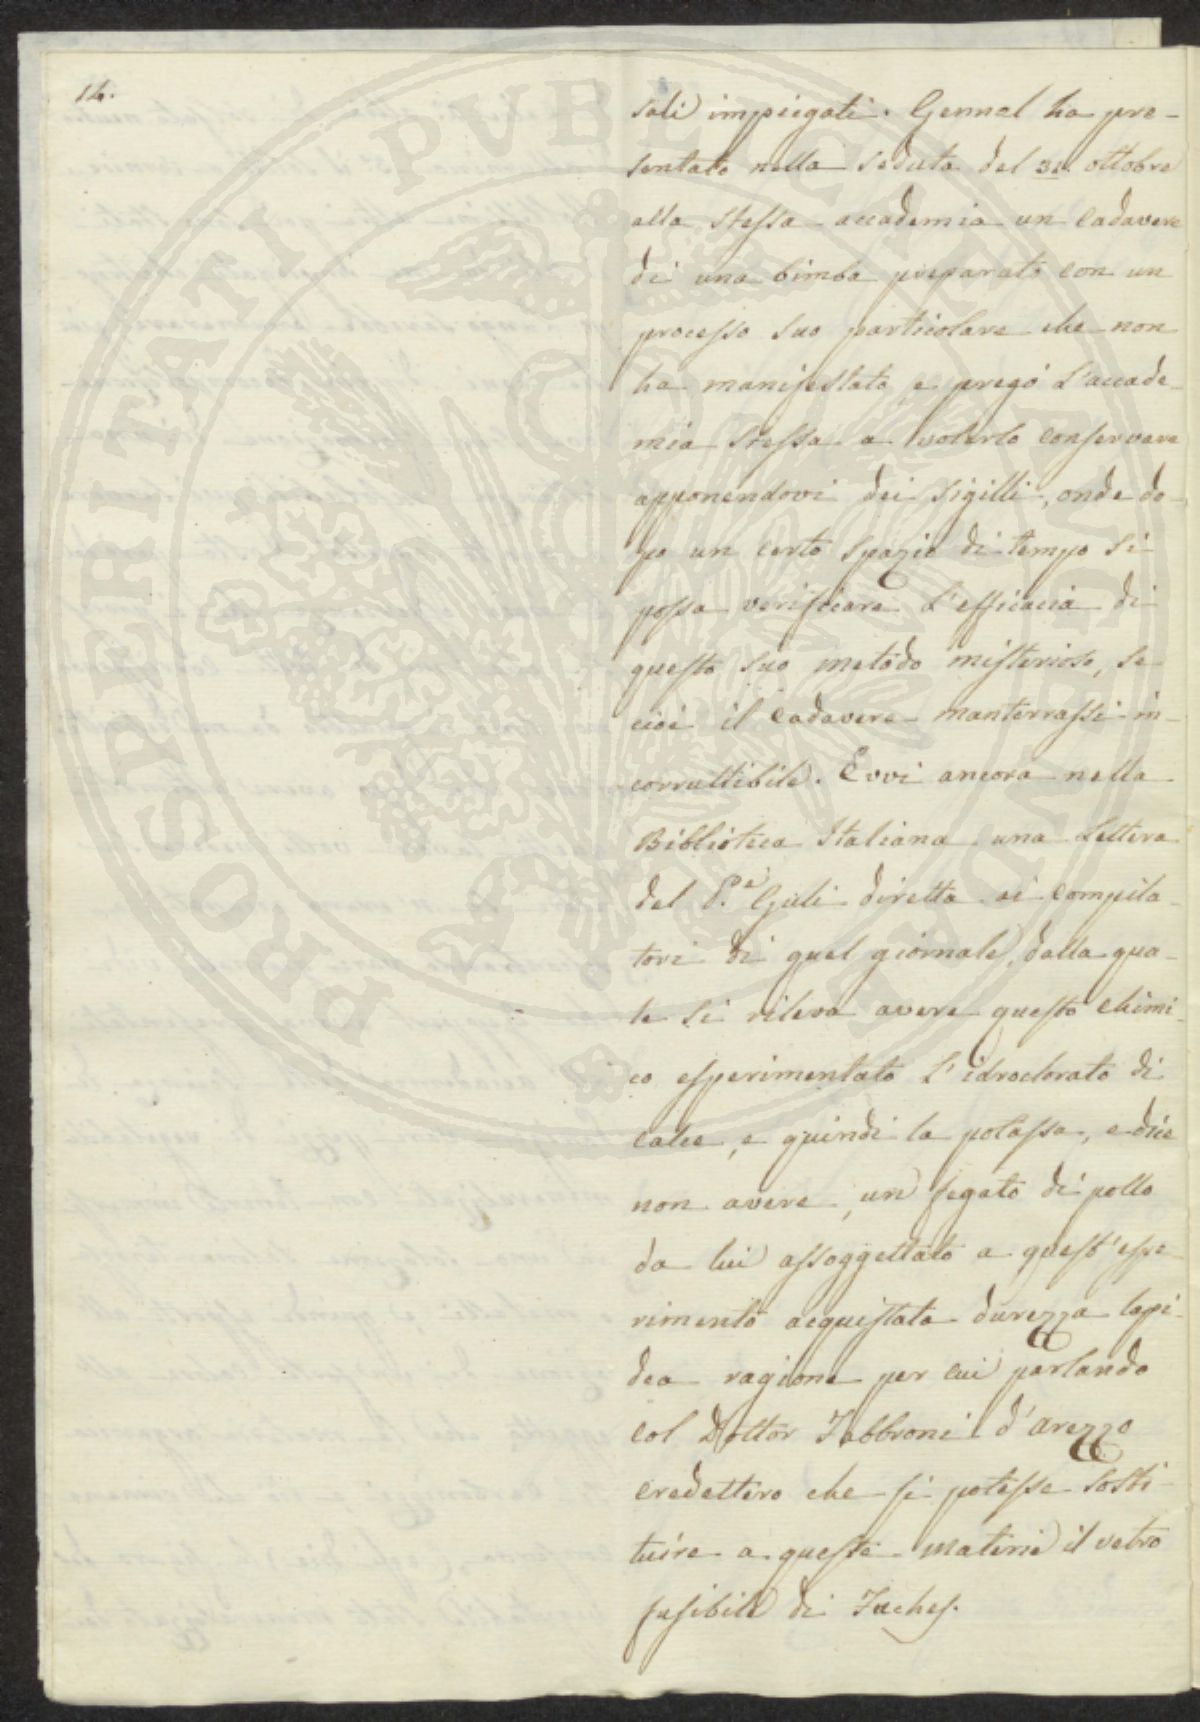 14.
sali impiegati. Gennal ha pre-
sentato nella seduta del 31. ottobre
alla stessa accademia un cadavere
di una bimba preparato con un
processo suo particolare che non
ha manifestato, e pregò l'accade-
mia stessa a volerlo conservare
apponendovi dei sigilli, onde do-
po un certo spazio di tempo si
possa verificare l'efficacia di
questo suo metodo misterioso, se
cioè il cadavere manterrassi in-
corruttibile. Evvi ancora nella
Biblioteca Italiana una lettera
del P.e Giuli diretta ai compila-
tori di quel giornale, dalla qua-
le si rileva avere questo chimi-
co esperimentato l'idroclorato di
calce, e quindi la potassa, e dice
non avere, un fegato di pollo
da lui assoggettato a quest'espe-
rimento acquistata durezza lapi-
dea ragione per cui parlando
col Dottor Fabbroni d'Arezzo
credettero che si potesse sosti-
tuire a queste materie il vetro
fusibile di Fuches.
PROSPERITATI PUBLICAE